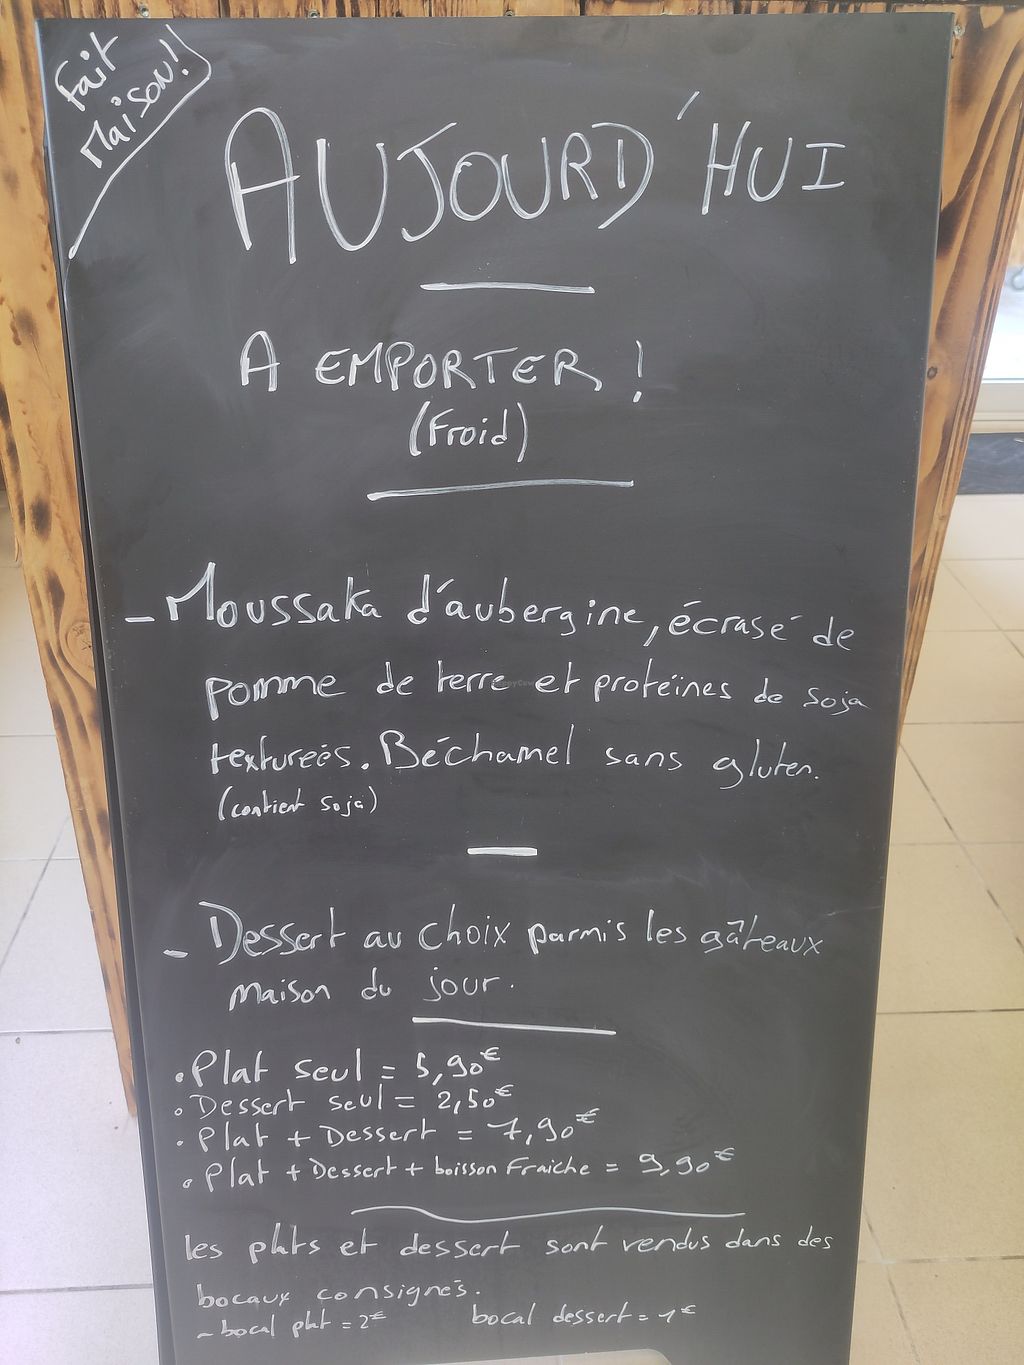 Fait
Maison!
AUJOURD'HUI
A EMPORTER !
(Froid)
- Moussaka d'aubergine, écrasé de
pomme de terre et protéïnes de soja
texturées. Béchamel sans gluten.
(contient soja)
- Dessert au choix parmis les gâteaux
maison du jour.
• Plat seul = 5,90€
• Dessert seul = 2,50€
• Plat + Dessert = 7,90€
• Plat + Dessert + boisson Fraiche = 9,90€
les plats et dessert sont vendus dans des
bocaux consignés.
- bocal plat = 2€ bocal dessert = 1€